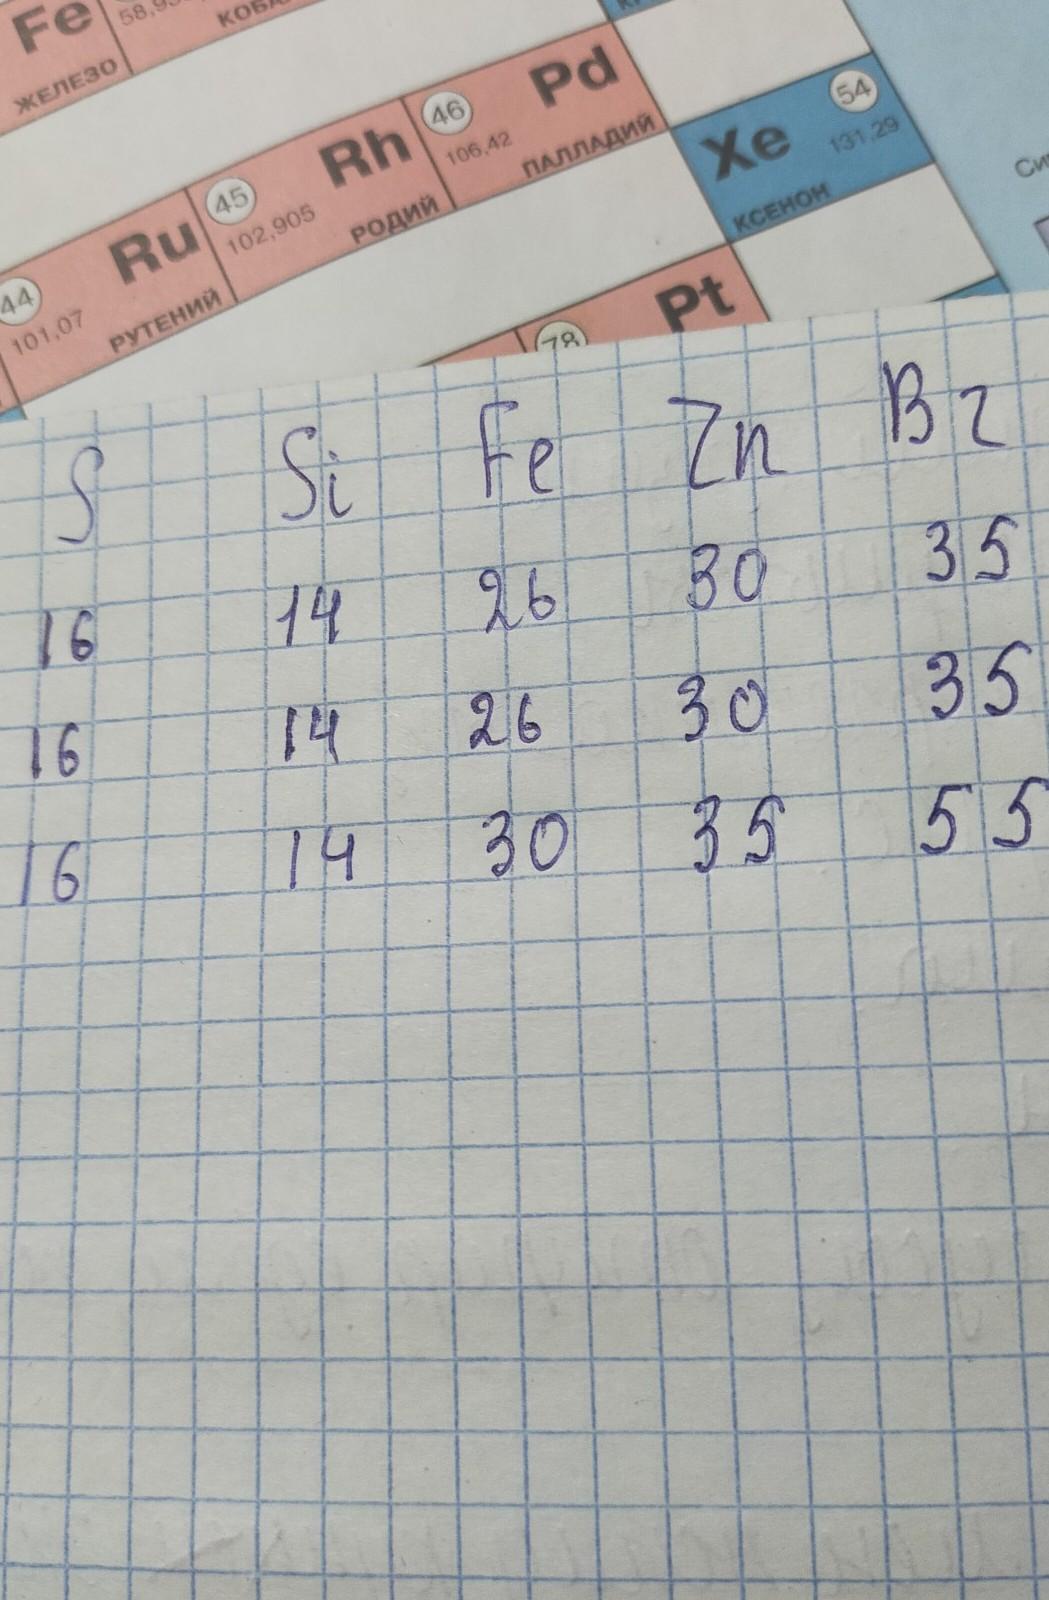 Fe 58,93 КОБА
ЖЕЛЕЗО
46 Pd
106,42 ПАЛЛАДИЙ
54
Xe 131,29
КСЕНОН
45 Rh
102,905 РОДИЙ
44 Ru
101,07 РУТЕНИЙ
78 Pt
S Si Fe Zn Br
16 14 26 30 35
16 14 26 30 35
16 14 30 35 55